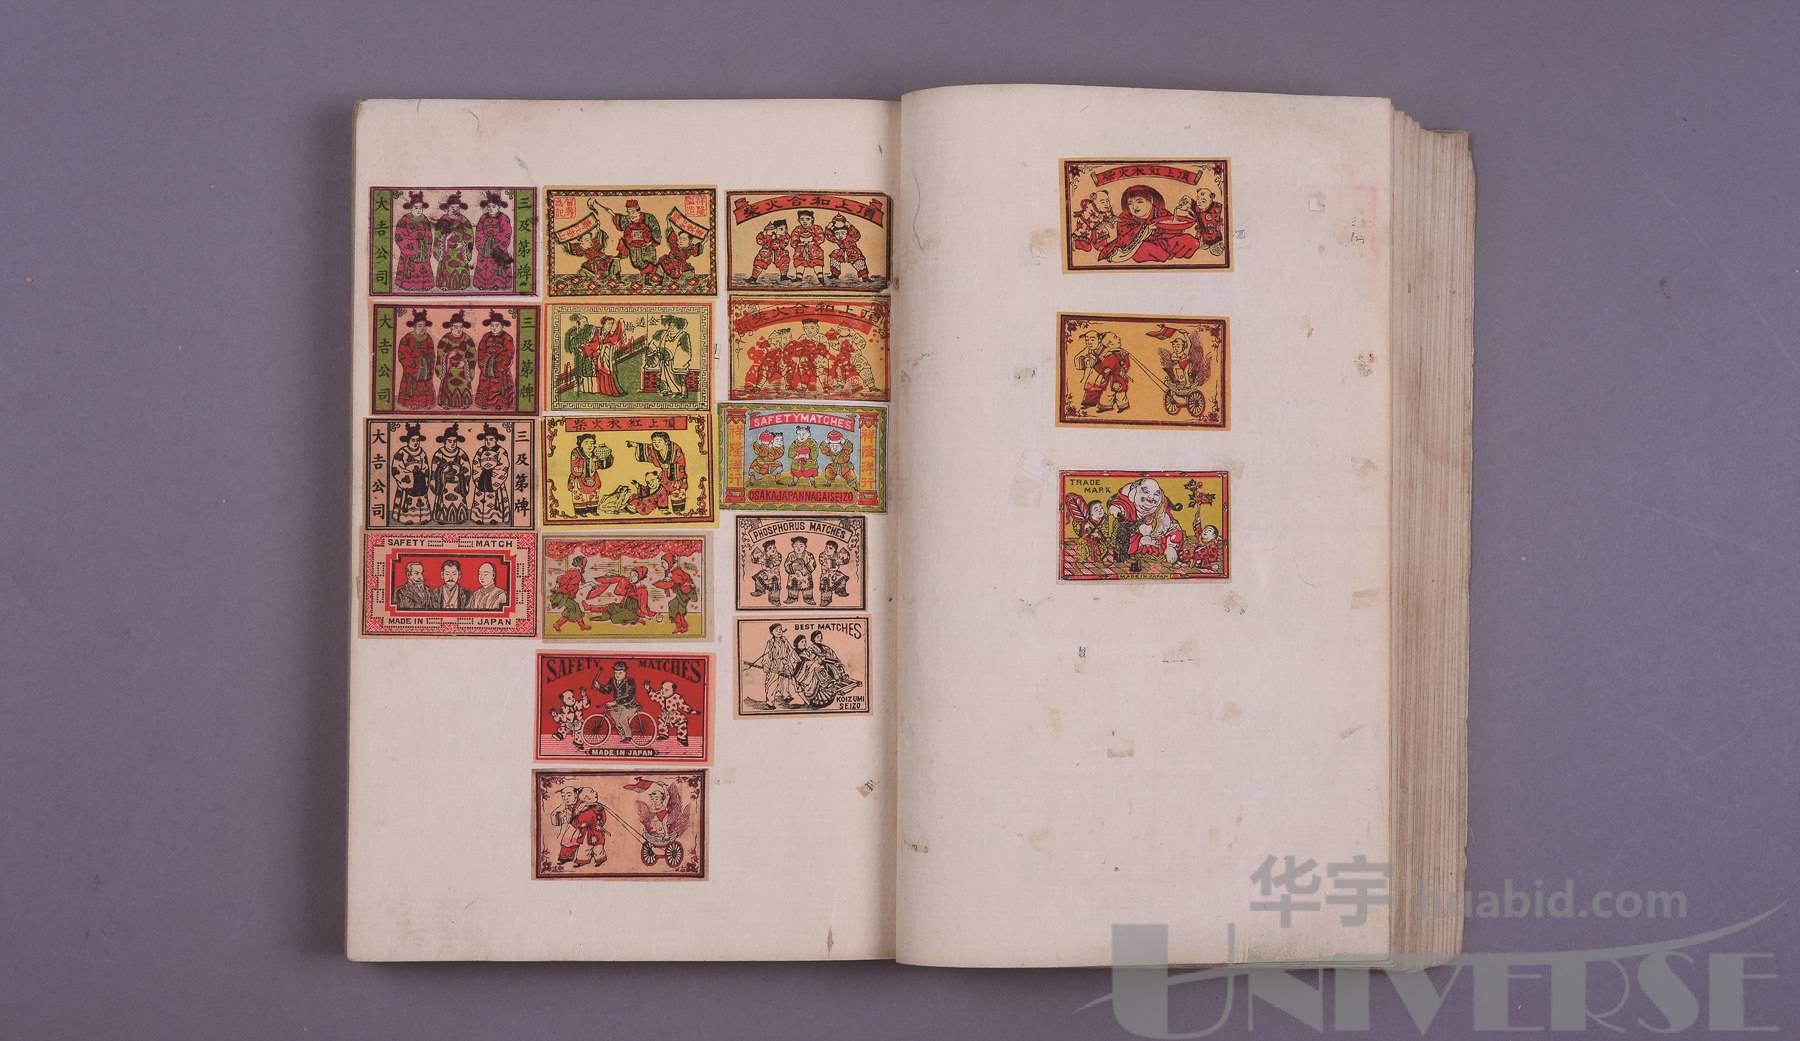 大吉公司
三及第牌
大吉公司
三及第牌
大吉公司
三及第牌
SAFETY MATCH
MADE IN JAPAN
頂上紅衣火柴
SAFETY MATCHES
MADE IN JAPAN
頂上和合火柴
頂上和合火柴
SAFETY MATCHES
祥隆洋行
祥隆洋行
OSAKA JAPAN NAGAI SEIZO
PHOSPHORUS MATCHES
BEST MATCHES
KOIZUMI
SEIZO
頂上紅衣火柴
TRADE
MARK
MADE IN JAPAN
华宇 huabid.com
UNIVERSE